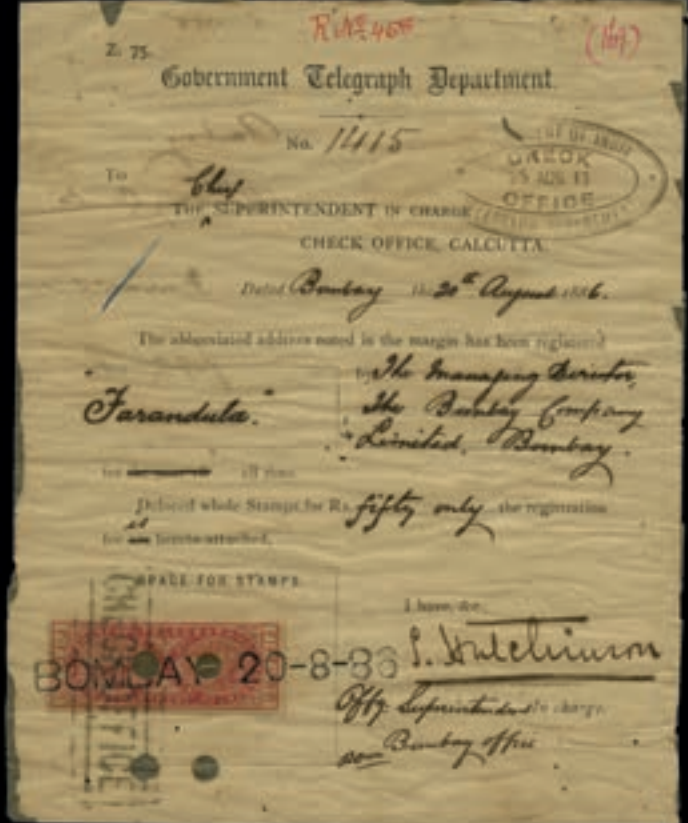 (164)
Z. 75.
Government Telegraph Department.
No. 1415
CHECK
OFFICE
To
Chief
THE SUPERINTENDENT IN CHARGE
CHECK OFFICE, CALCUTTA.
Dated Bombay the 20th August 1886.
The abbreviated address noted in the margin has been registered
by The Managing Director,
"Farandula."
The Bombay Company
Limited, Bombay.
for all time.
Defaced whole Stamps for Rs. fifty only the registration
fee is hereto attached.
SPACE FOR STAMPS
I have, &c.,
BOMBAY 20-8-86
CHECK OFFICE
S. Hutchinson
Offg. Superintendent in charge.
Bombay office